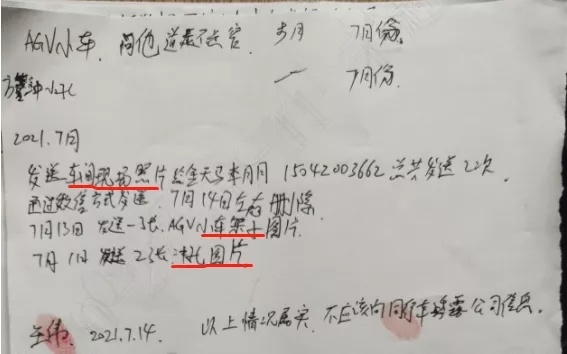 AGV小车. 问他道 7月份.
一 7月份.
2021.7月
发送车间现场照片给金天马李月月 15042003662 总共发送22次.
通过微信方式发送. 7月14日全部删除
7月13日 发送一张. AGV小车架子图片.
7月1日 发送23张 图片.
王伟. 2021.7.14. 以上情况属实. 不应该向同行车 露公司信息.